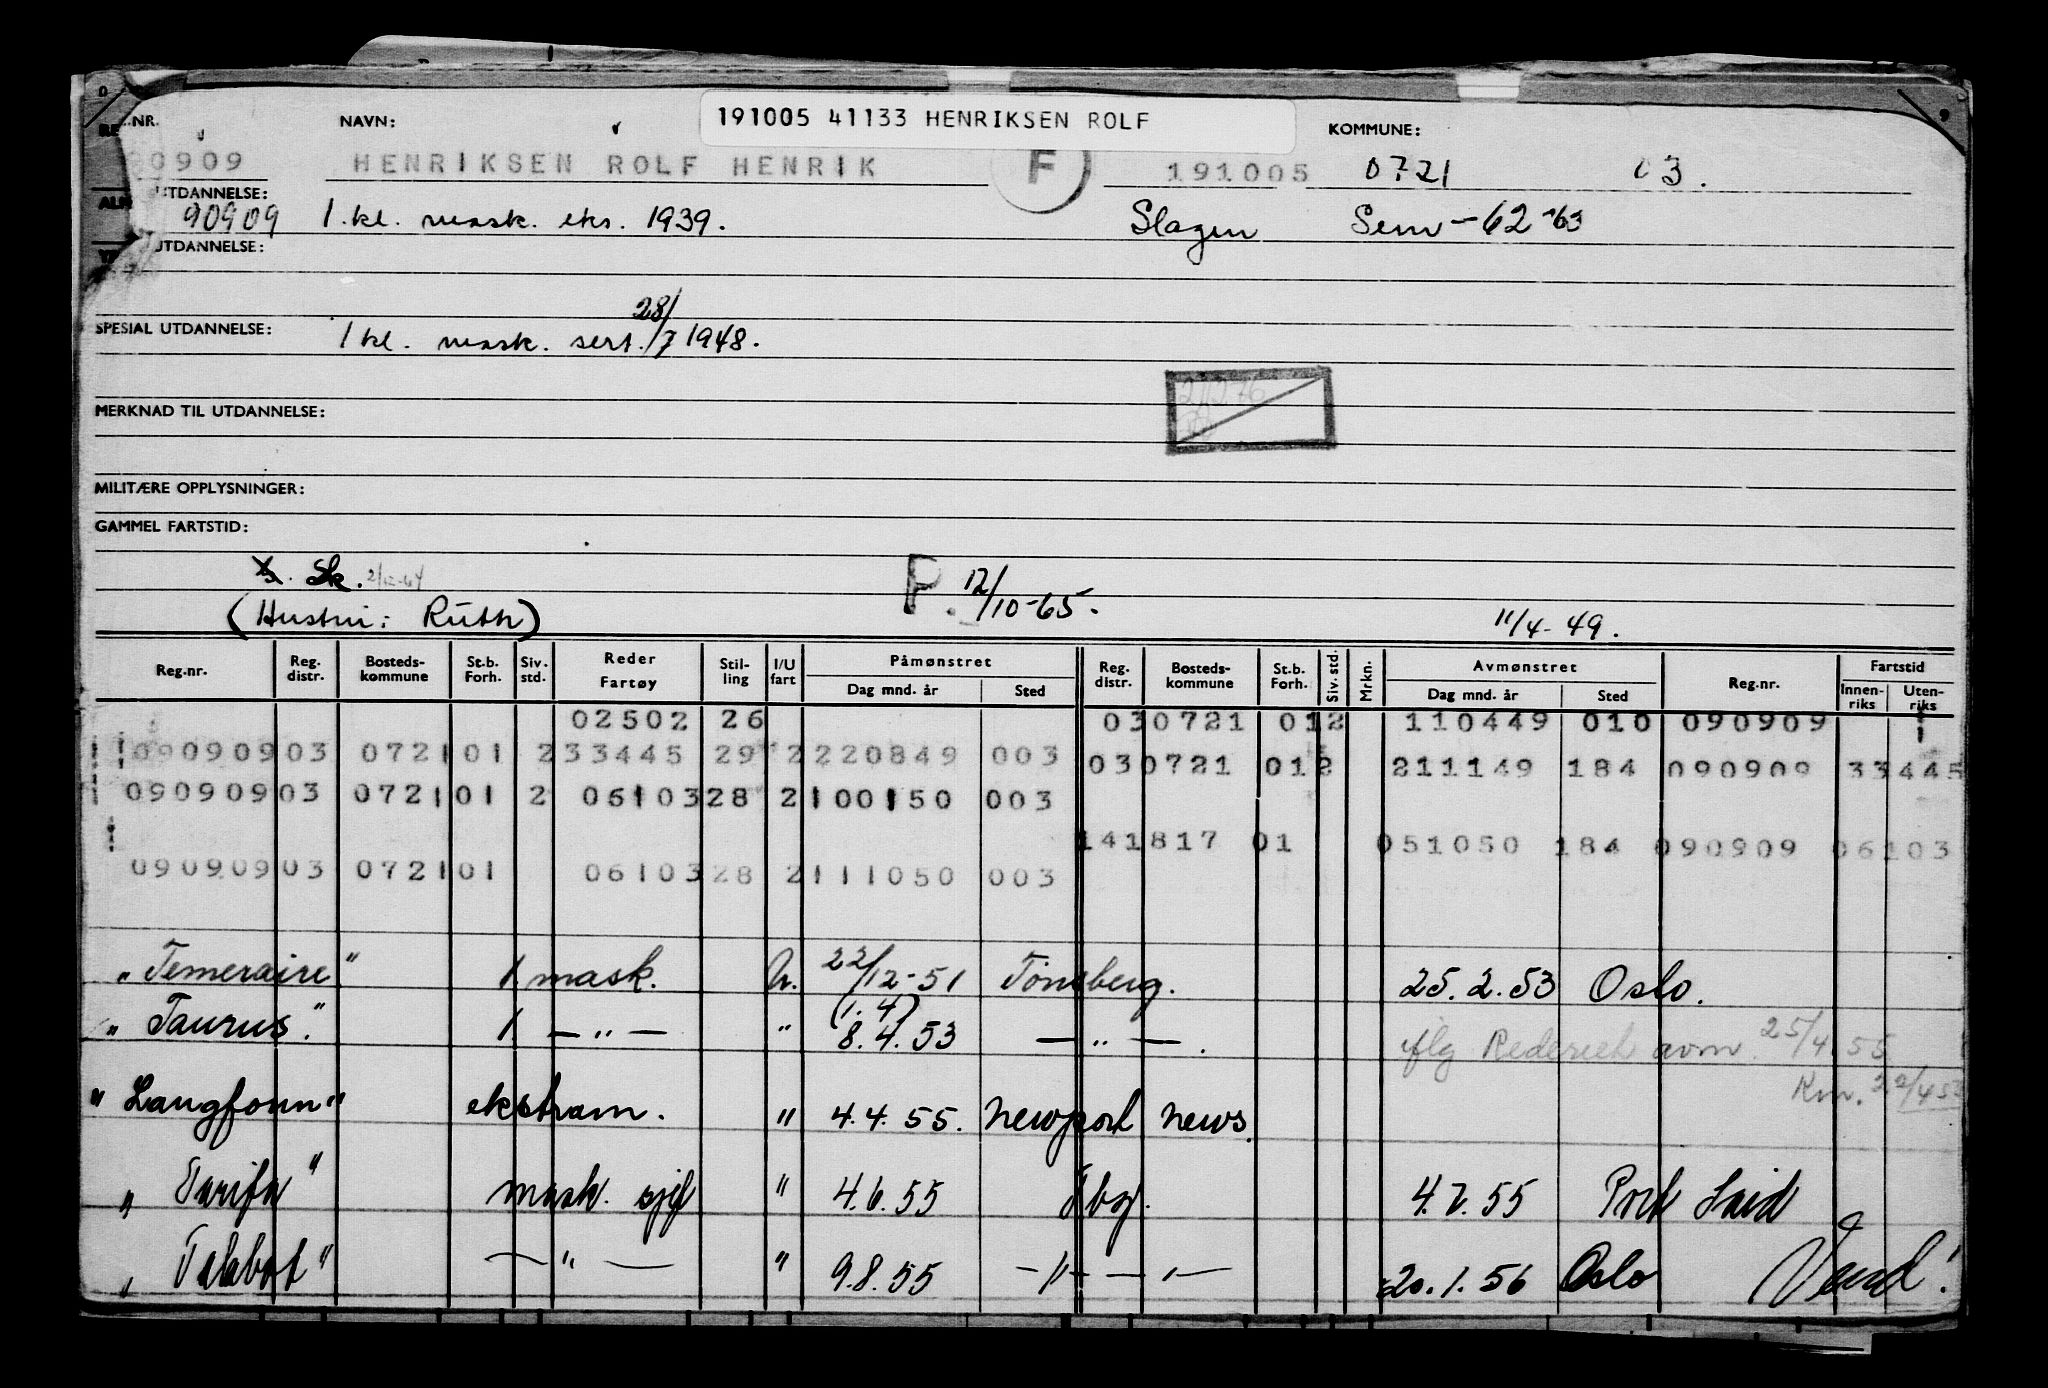 191005 41133 HENRIKSEN ROLF
NR. NAVN: KOMMUNE:
90909 HENRIKSEN ROLF HENRIK F 191005 0721 03.
UTDANNELSE:
90909 1. kl. mask. eks. 1939. Slagen Sem - 62-63
UTDANNELSE:
28/
SPESIAL UTDANNELSE: 1 kl. mask. sert. /7 1948.
MERKNAD TIL UTDANNELSE:
MILITÆRE OPPLYSNINGER:
GAMMEL FARTSTID:
Sk. 2/12-64 P. 12/10-65.
(Hustru: Ruth) 11/4-49.
Reg.nr. Reg. distr. Bosteds-kommune St.b. Forh. Siv. std. Reder Fartøy Stil-ling I/U fart Påmønstret Dag mnd. år Sted Reg. distr. Bosteds-kommune St.b. Forh. Siv. std. Mrkn. Avmønstret Dag mnd. år Sted Reg.nr. Fartstid Innen-riks Uten-riks
02502 26 030721 012 110449 010 090909
090909 03 0721 01 2 33445 29 2 220849 003 030721 01 2 211149 184 090909 33445
090909 03 0721 01 2 06103 28 2 100150 003
141817 01 051050 184 090909 06103
090909 03 0721 01 06103 28 2 111050 003
"Temeraire" 1 mask. U. 22/12-51 Tönsberg. 25.2.53 Oslo.
(1.4)
"Taurus." 1 — " — " 8.4.53 — " — . iflg Rederiet avm. 25/4 55
Km. 22/4 53
"Langfonn" ekstram. " 4.4.55. Newport News.
"Tarifa" mask. sjef " 4.6.55 Tbg. 4.7.55 Port Said
"Talabot" — " — " 9.8.55 — " — — " — 20.1.56 Oslo Vend!